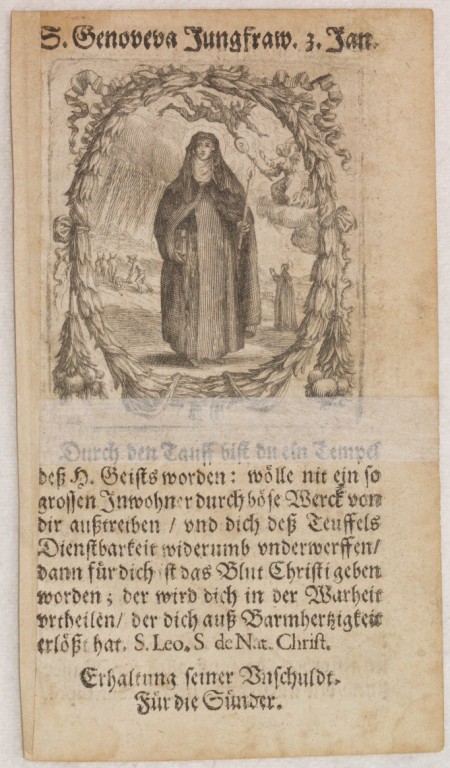 S. Genoveva Jungfraw. 3. Jan.
Durch den Tauff bist du ein Tempel
deß H. Geists worden: wölle nit ein so
grossen Inwohner durch böse Werck von
dir außtreiben / vnd dich deß Teuffels
Dienstbarkeit widerumb vnderwerffen/
dann für dich ist das Blut Christi geben
worden; der wird dich in der Warheit
vrtheilen/ der dich auß Barmhertzigkeit
erlößt hat. S. Leo. S de Nat. Christ.
Erhaltung seiner Vnschuldt.
Für die Sünder.